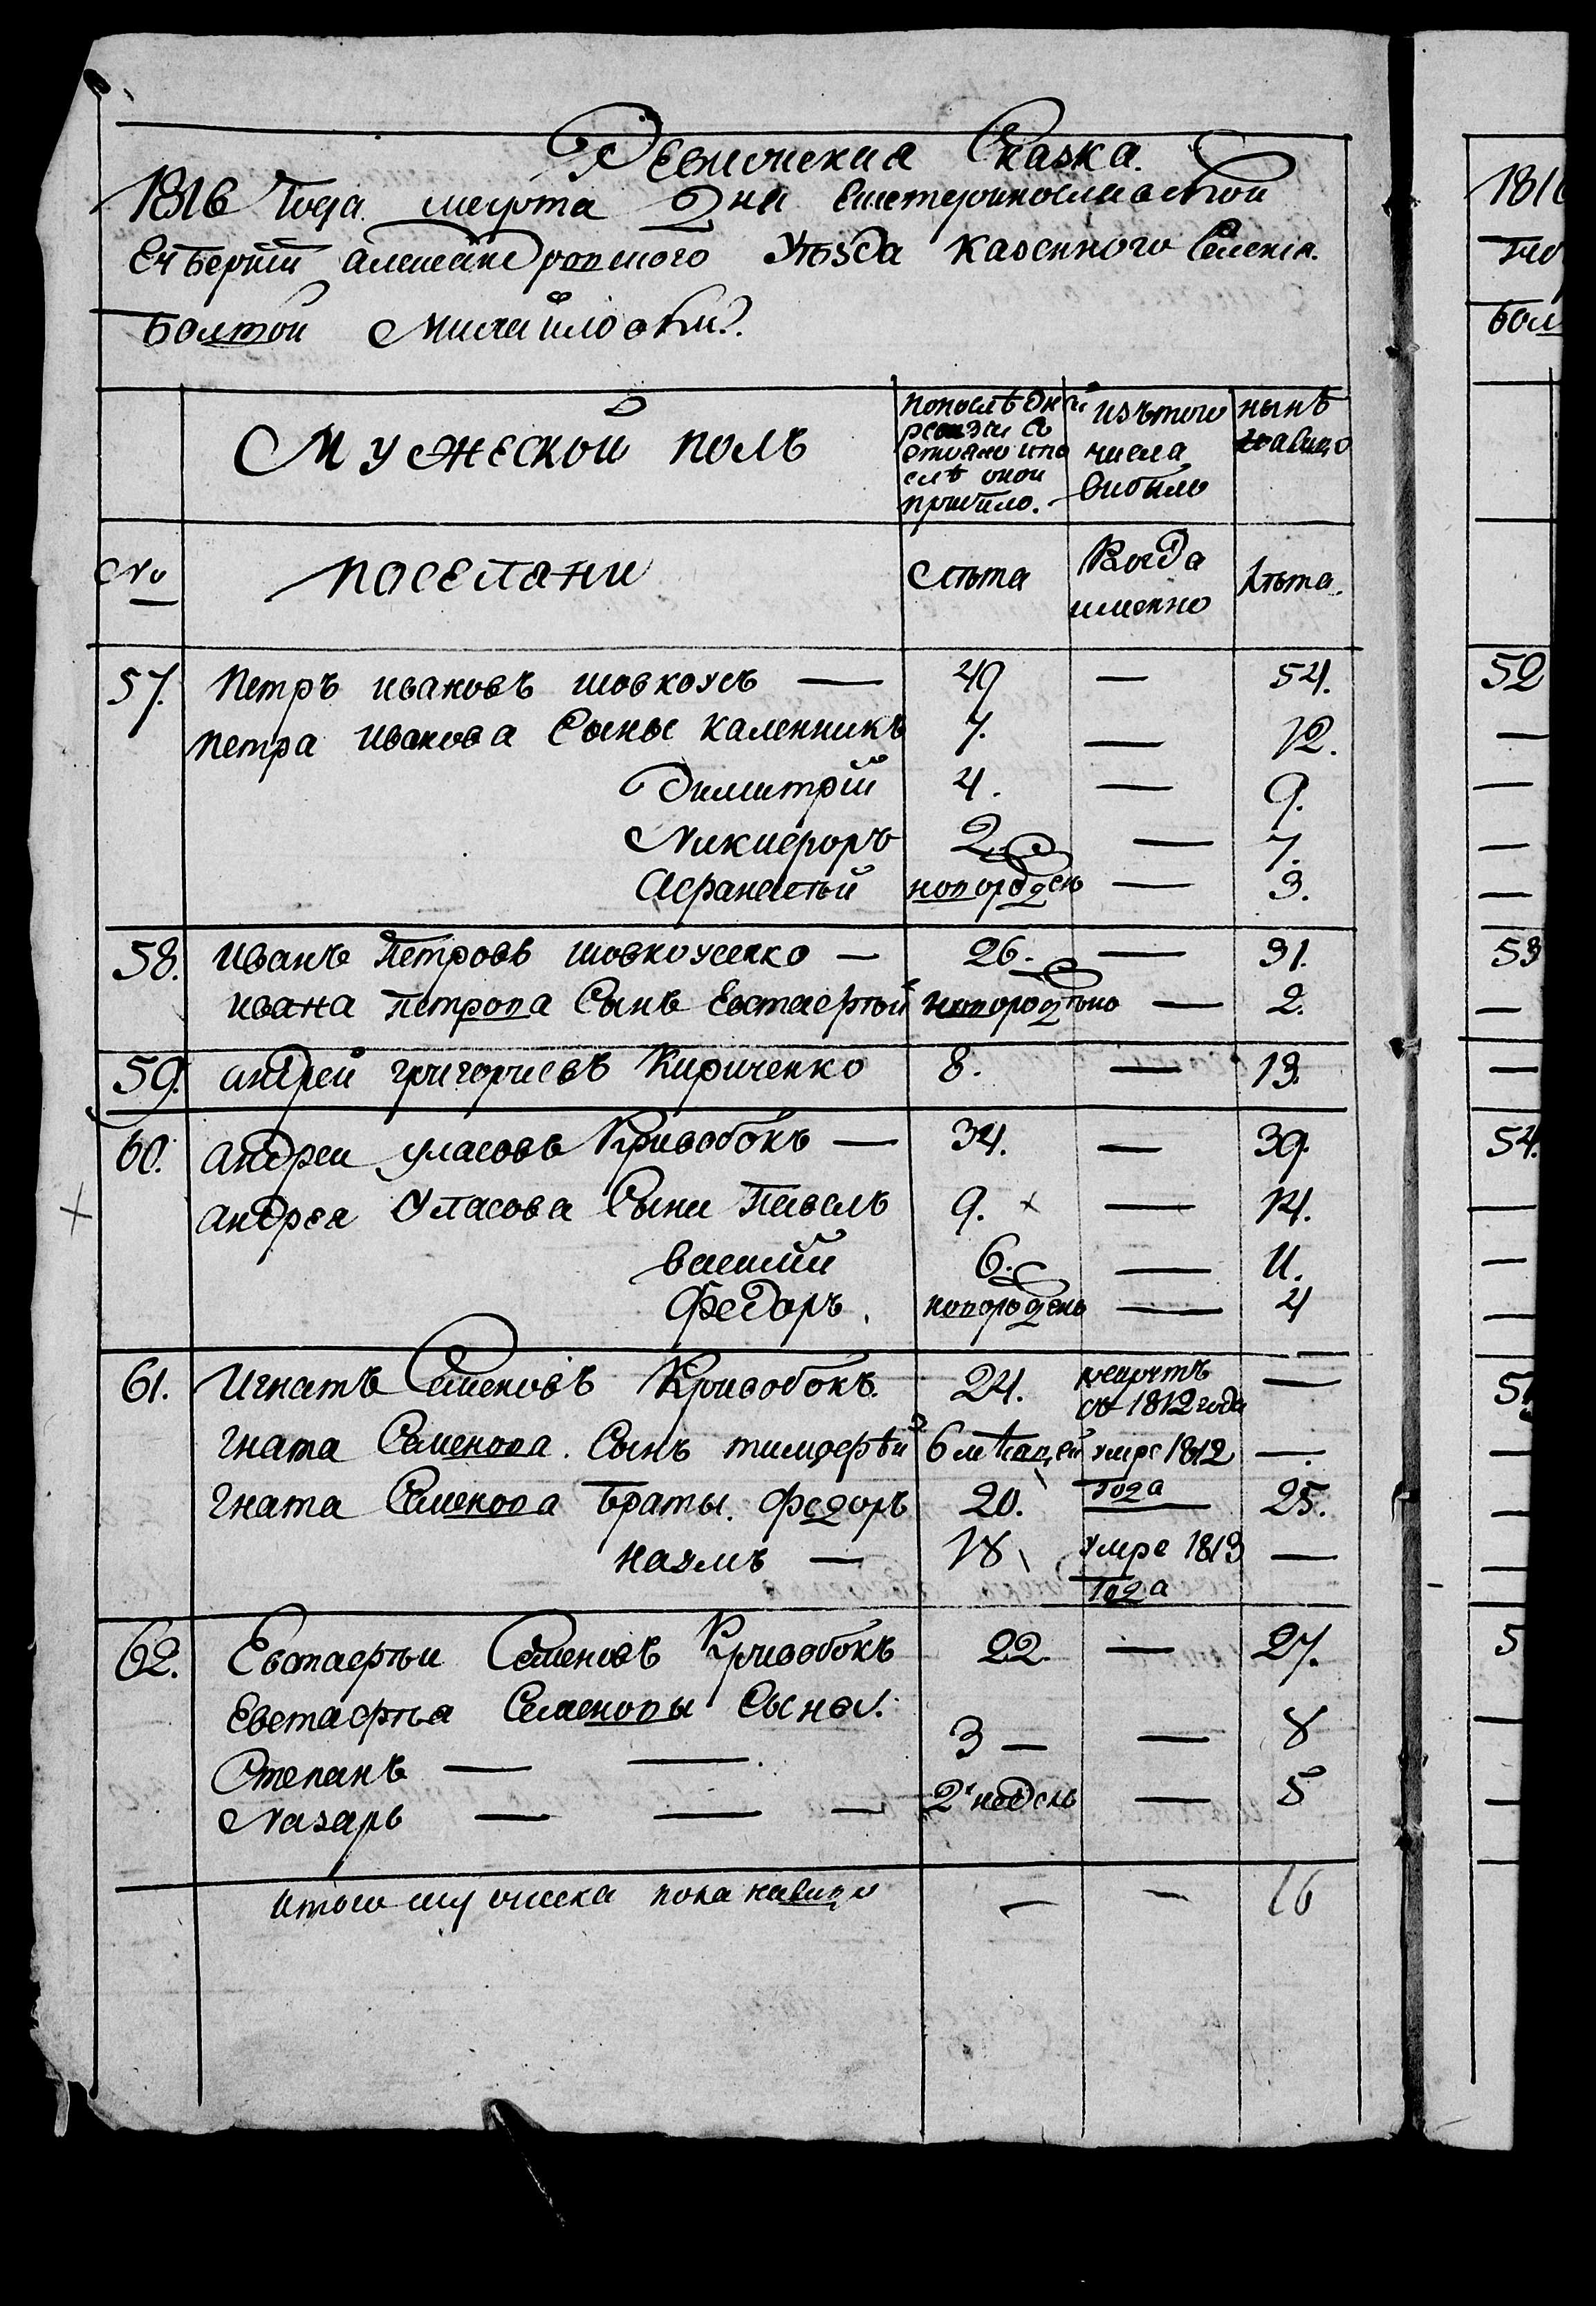 Ревижская Сказка.
1816 Года марта 2 дня Екатеринославской
Губернии александровского Уѣзда казенного Селения.
болшой Михайловки.
Мужеской полъ
попослѣдней ревизии состояло ипослѣ оной прибыло.
изътого числа выбыло
нынѣ на лицо
№ поселяни Лѣта Когда именно Лѣта.
57. Петръ ивановъ шовкоусъ — 49 — 54.
петра иванова Сыны каленникъ 7. — 12.
Димитрїй 4. — 9.
Никифоръ 2. — 7.
Афанастьй новорожденъ — 3.
58. иванъ петровъ шовкоусенко — 26. — 31.
ивана петрова Сынъ Евстафтьй новорожденъ — 2.
59. андрей григориевъ Кириченко 8. — 13.
60. андреи уласовъ Кривобокъ — 34. — 39.
андреа Уласова Сыни Павелъ 9. × — 14.
василий 6. — 11.
Федоръ. новорожденъ — 4
61. Игнатъ Семеновъ Кривобокъ. 24. рекрутъ съ 1812 года —
Гната Семенова. Сынъ тимофѣй 6 мѣсяцей умре 1812 года —.
Гната Семенова браты. Федоръ 20. — 25.
наумъ — 18 умре 1813 года —
62. Евстафьи Семеновъ Кривобокъ 22. — 27.
Евстафьа Семеновы Сыны.
Степанъ — — 3 — — 8
Назаръ — — — 2 недель — 5
итого мужеска пола налицо — — 16
1816
бол
52
53
54.